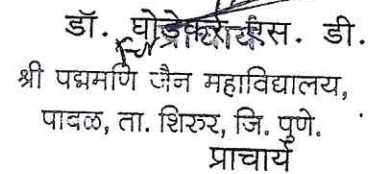 डॉ. घोडेकर एस. डी.
प्राचार्य
श्री पद्ममणि जैन महाविद्यालय,
पाबळ, ता. शिरुर, जि. पुणे.
प्राचार्य